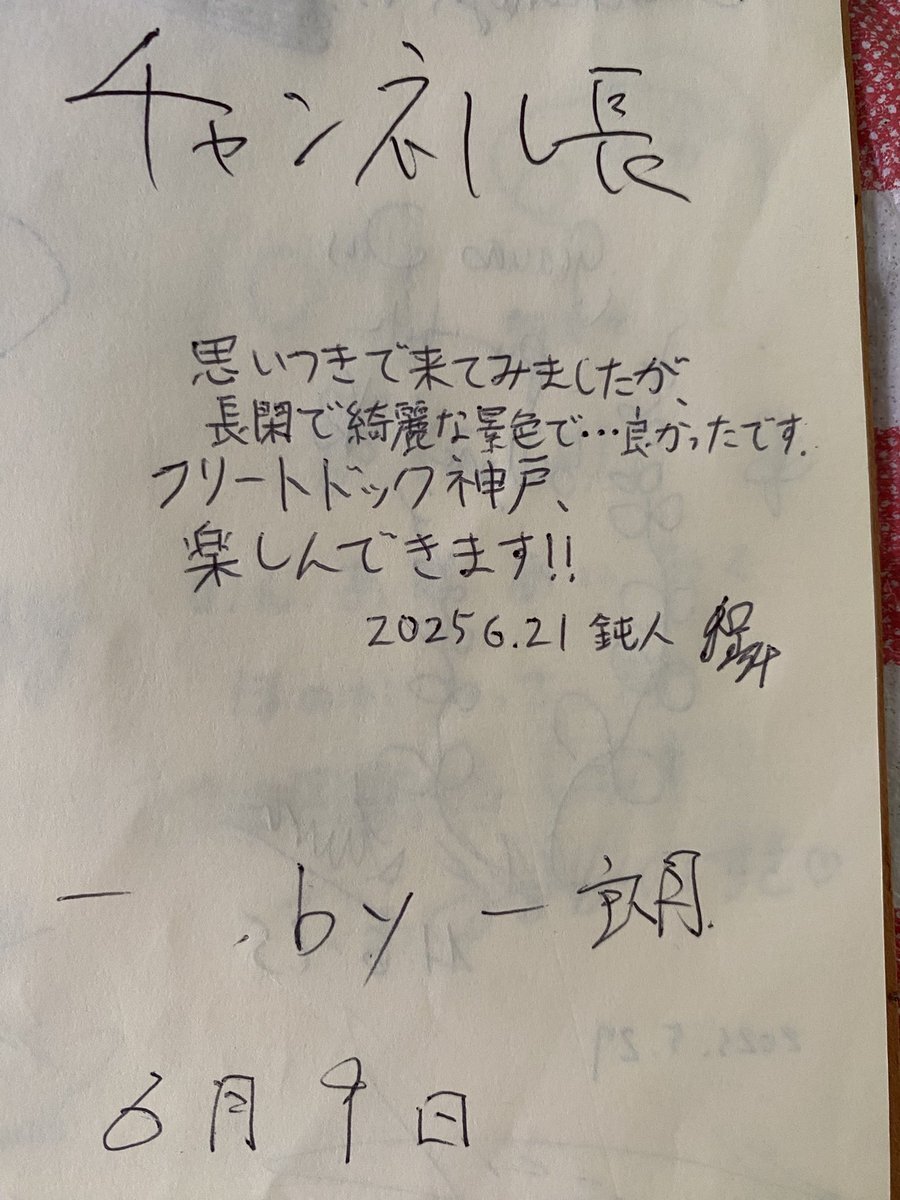 チャンネル長
思いつきで来てみましたが、
長閑で綺麗な景色で…良かったです.
フリートドック神戸、
楽しんできます!!
2025 6.21 鈍人
一
. by 一朗.
6月9日
2025.5.29